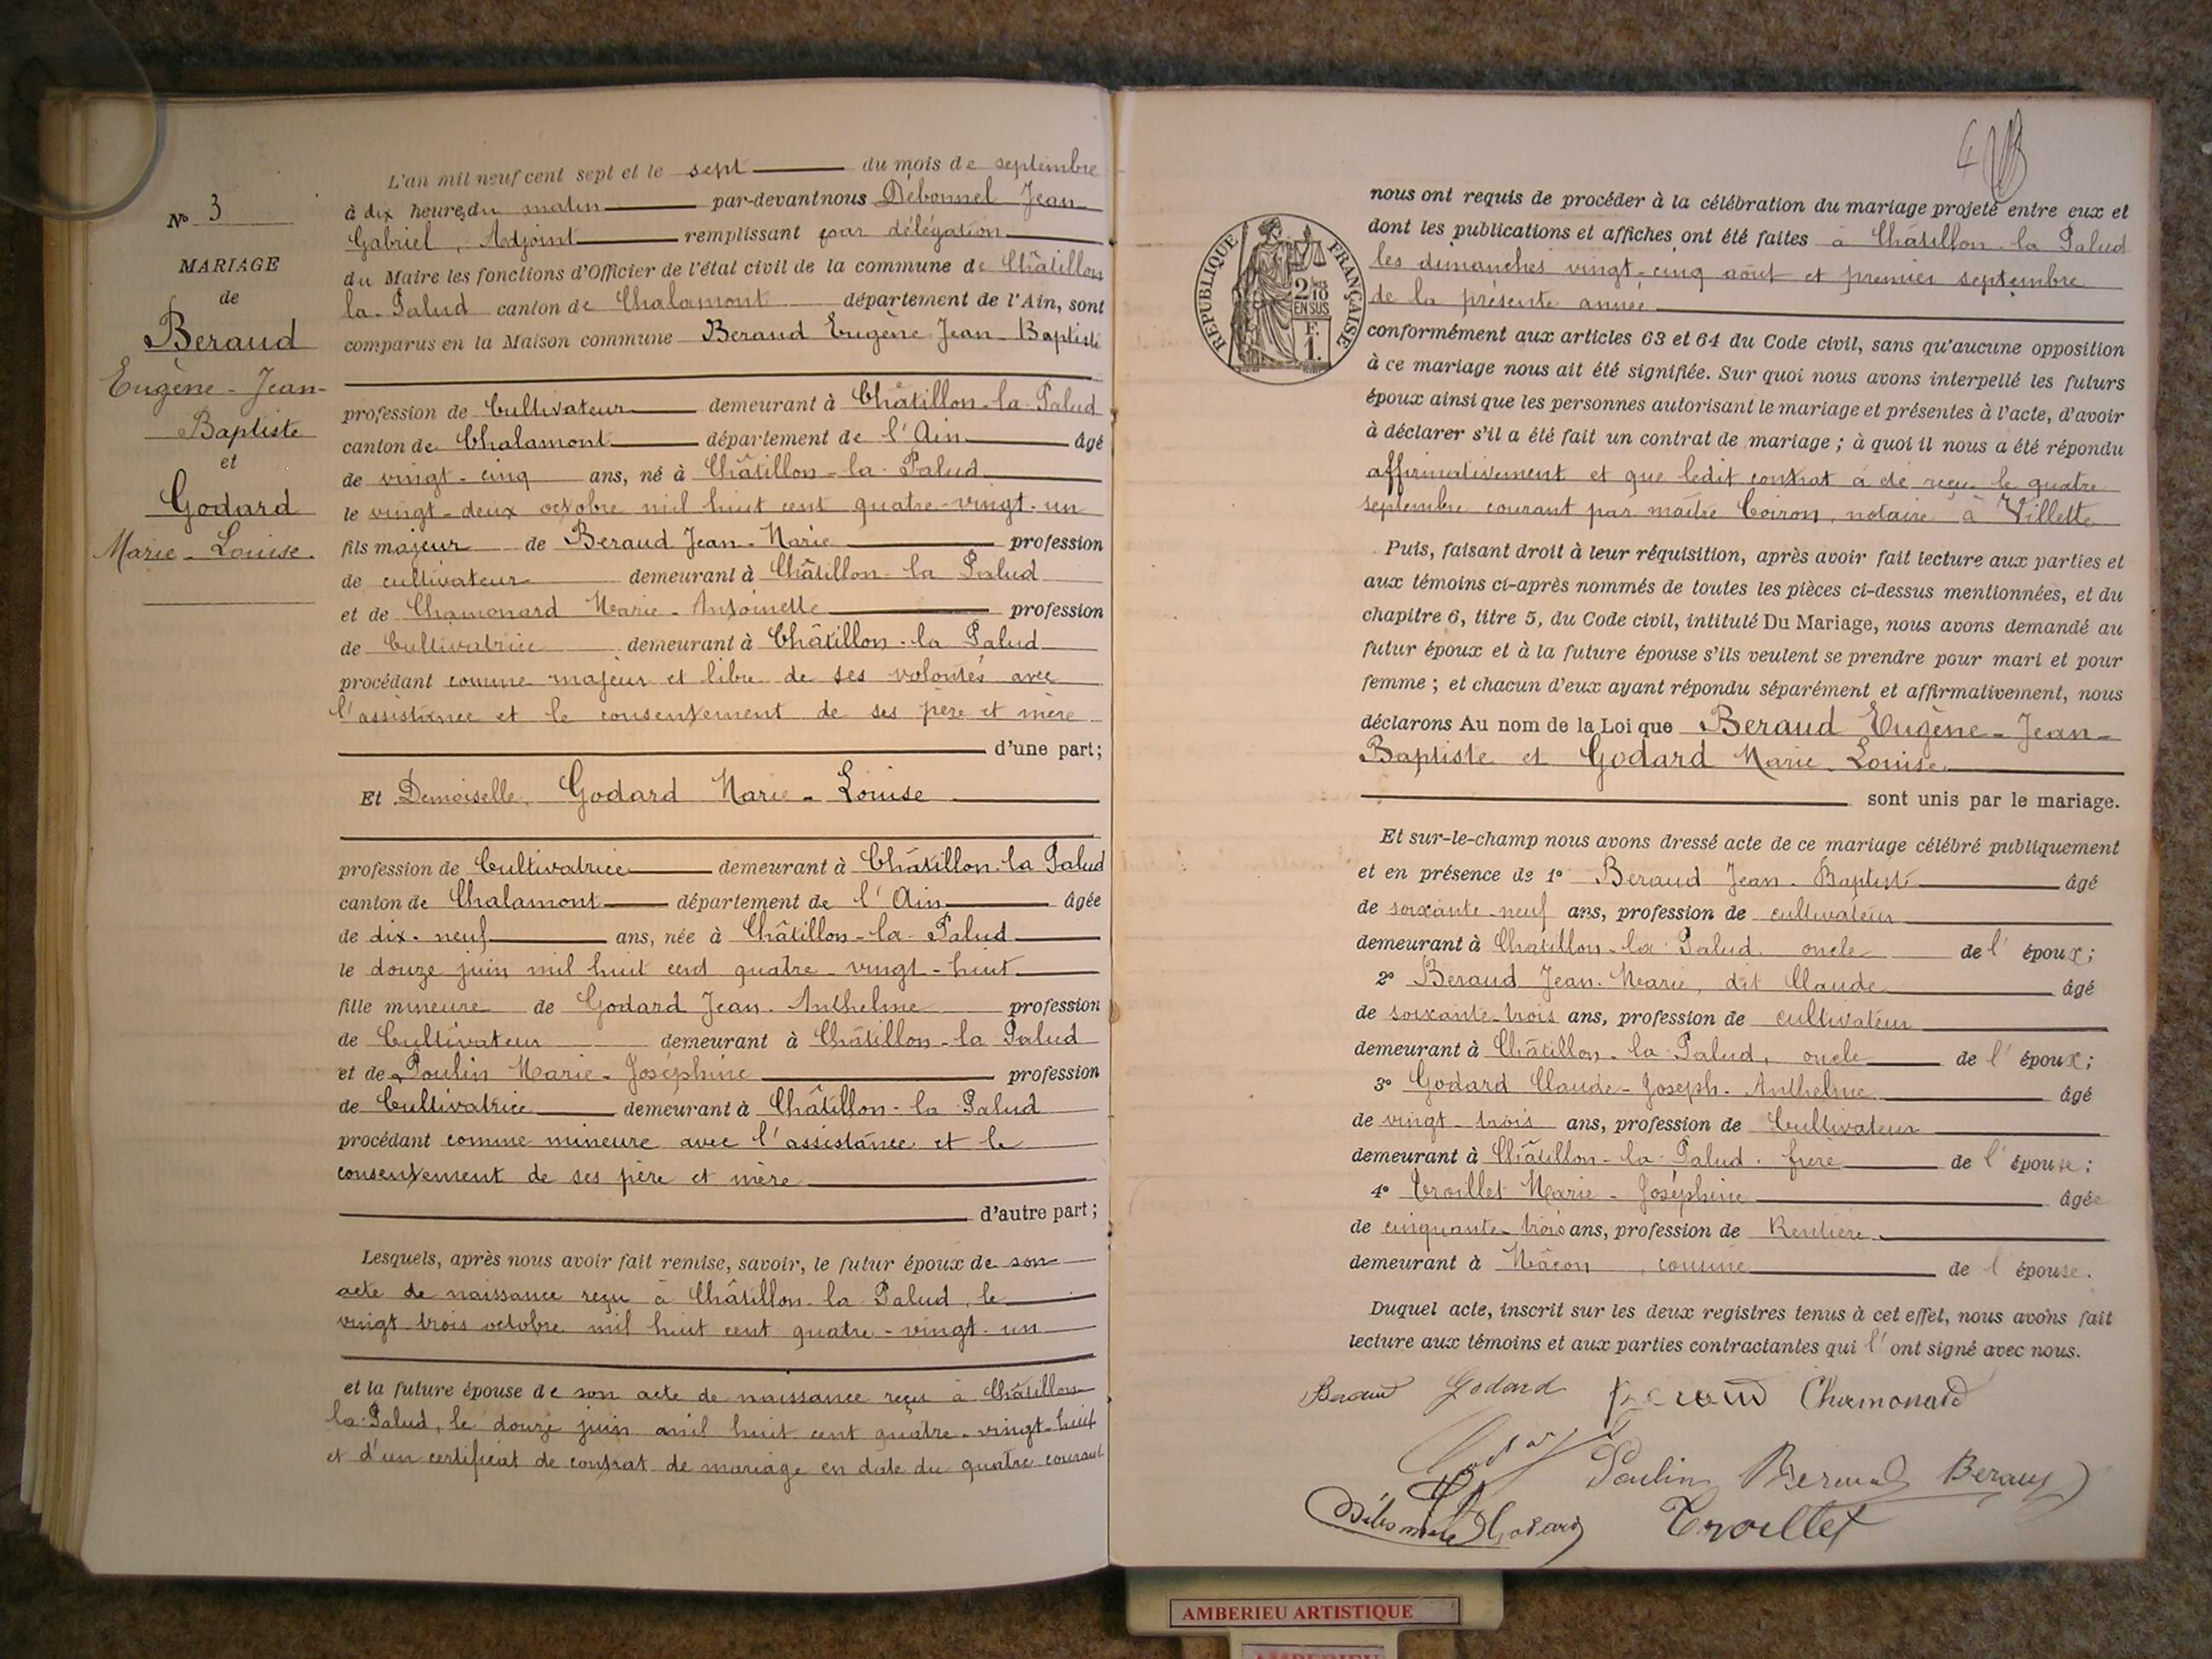 Nº 3
MARIAGE
de
Beraud
Eugène - Jean-
Baptiste
et
Godard
Marie - Louise.
L'an mil neuf cent sept et le sept du mois de septembre
à dix heures du matin par-devant nous Débonnel Jean
Gabriel, Adjoint remplissant par délégation
du Maire les fonctions d'Officier de l'état civil de la commune de Châtillon
la-Palud canton de Chalamont département de l'Ain, sont
comparus en la Maison commune Beraud Eugène Jean-Baptiste
profession de Cultivateur demeurant à Châtillon-la-Palud
canton de Chalamont département de l'Ain âgé
de vingt-cinq ans, né à Châtillon-la-Palud
le vingt-deux octobre mil huit cent quatre-vingt-un
fils majeur de Beraud Jean-Marie profession
de cultivateur demeurant à Châtillon-la Palud
et de Chamonard Marie-Antoinette profession
de Cultivatrice demeurant à Châtillon-la Palud
procédant comme majeur et libre de ses volontés avec
l'assistance et le consentement de ses père et mère
d'une part;
Et Demoiselle Godard Marie-Louise
profession de Cultivatrice demeurant à Châtillon-la Palud
canton de Chalamont département de l'Ain âgée
de dix-neuf ans, née à Châtillon-la-Palud
le douze juin mil huit cent quatre-vingt-huit
fille mineure de Godard Jean-Anthelme profession
de Cultivateur demeurant à Châtillon-la Palud
et de Poulin Marie-Joséphine profession
de Cultivatrice demeurant à Châtillon-la Palud
procédant comme mineure avec l'assistance et le
consentement de ses père et mère
d'autre part;
Lesquels, après nous avoir fait remise, savoir, le futur époux de son
acte de naissance reçu à Châtillon-la Palud, le
vingt-trois octobre mil huit cent quatre-vingt-un
et la future épouse de son acte de naissance reçu à Châtillon
la-Palud, le douze juin mil huit cent quatre-vingt-huit
et d'un certificat de contrat de mariage en date du quatre courant
RÉPUBLIQUE FRANÇAISE
2 MES 10
EN SUS
F.
1.
nous ont requis de procéder à la célébration du mariage projeté entre eux et
dont les publications et affiches ont été faites à Châtillon-la Palud
les dimanches vingt-cinq août et premier septembre
de la présente année
conformément aux articles 63 et 64 du Code civil, sans qu'aucune opposition
à ce mariage nous ait été signifiée. Sur quoi nous avons interpellé les futurs
époux ainsi que les personnes autorisant le mariage et présentes à l'acte, d'avoir
à déclarer s'il a été fait un contrat de mariage; à quoi il nous a été répondu
affirmativement et que ledit contrat a été reçu le quatre
septembre courant par maître Coiron, notaire à Villette
Puis, faisant droit à leur réquisition, après avoir fait lecture aux parties et
aux témoins ci-après nommés de toutes les pièces ci-dessus mentionnées, et du
chapitre 6, titre 5, du Code civil, intitulé Du Mariage, nous avons demandé au
futur époux et à la future épouse s'ils veulent se prendre pour mari et pour
femme; et chacun d'eux ayant répondu séparément et affirmativement, nous
déclarons Au nom de la Loi que Beraud Eugène-Jean-
Baptiste et Godard Marie-Louise
sont unis par le mariage.
Et sur-le-champ nous avons dressé acte de ce mariage célébré publiquement
et en présence de 1º Beraud Jean-Baptiste âgé
de soixante-neuf ans, profession de cultivateur
demeurant à Châtillon-la Palud oncle de l'époux;
2º Beraud Jean-Marie, dit Claude âgé
de soixante-trois ans, profession de cultivateur
demeurant à Châtillon-la Palud, oncle de l'époux;
3º Godard Claude-Joseph-Anthelme âgé
de vingt-trois ans, profession de Cultivateur
demeurant à Châtillon-la-Palud. frère de l'épouse;
4º Troillet Marie-Joséphine âgée
de cinquante-trois ans, profession de Rentière
demeurant à Mâcon, cousine de l'épouse.
Duquel acte, inscrit sur les deux registres tenus à cet effet, nous avons fait
lecture aux témoins et aux parties contractantes qui l'ont signé avec nous.
Beraud Godard Beraud Chamonard
Poulin Beraud Beraud
Godard Troillet
AMBERIEU ARTISTIQUE
AMBERIEU